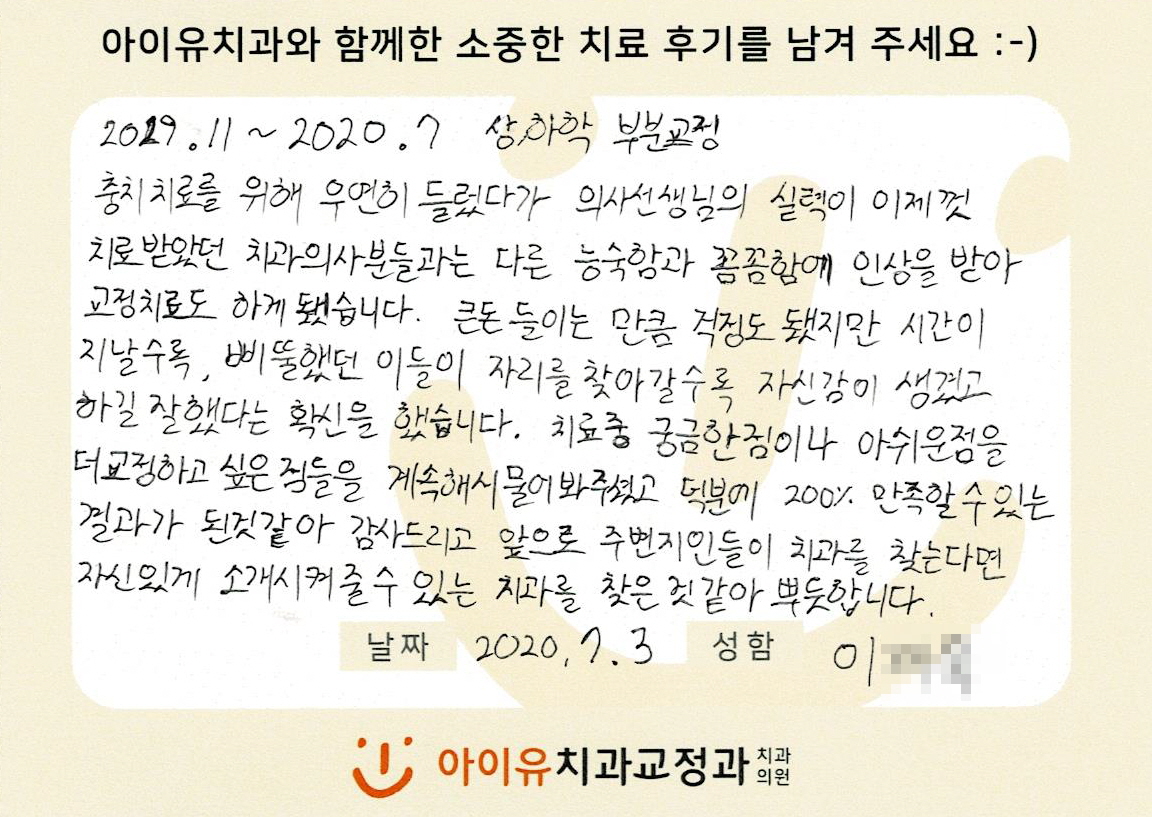 아이유치과와 함께한 소중한 치료 후기를 남겨 주세요 :-)
2019.11 ~ 2020.7 상,하학 부분교정
충치치료를 위해 우연히 들렀다가 의사선생님의 실력이 이제껏
치료받았던 치과의사분들과는 다른 능숙함과 꼼꼼함에 인상을 받아
교정치료도 하게 됐습니다. 큰돈 들이는 만큼 걱정도 됐지만 시간이
지날수록, 삐뚤했던 이들이 자리를 찾아갈수록 자신감이 생겼고
하길 잘했다는 확신을 했습니다. 치료중 궁금한점이나 아쉬운점을
더교정하고 싶은점들을 계속해서 물어봐주셨고 덕분에 200% 만족할 수 있는
결과가 된것같아 감사드리고 앞으로 주변지인들이 치과를 찾는다면
자신있게 소개시켜줄 수 있는 치과를 찾은 것같아 뿌듯합니다.
날짜 2020.7.3 성함 이
아이유치과교정과 치과
의원